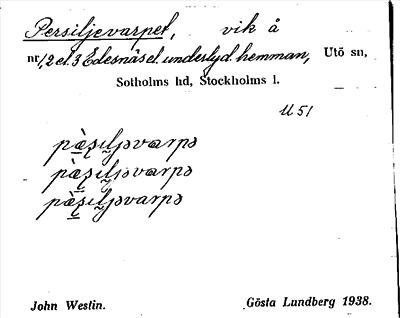 Persiljevarpet, vik å
nr 1, 2 et. 3 Edesnäs el. underlyd. hemman, Utö sn,
Sotholms hd, Stockholms l.
U 51
pæ̀ʂiljəvarpə
pæ̀ʂiljəvarpə
pæ̀ʂiljəvarpə
John Westin. Gösta Lundberg 1938.